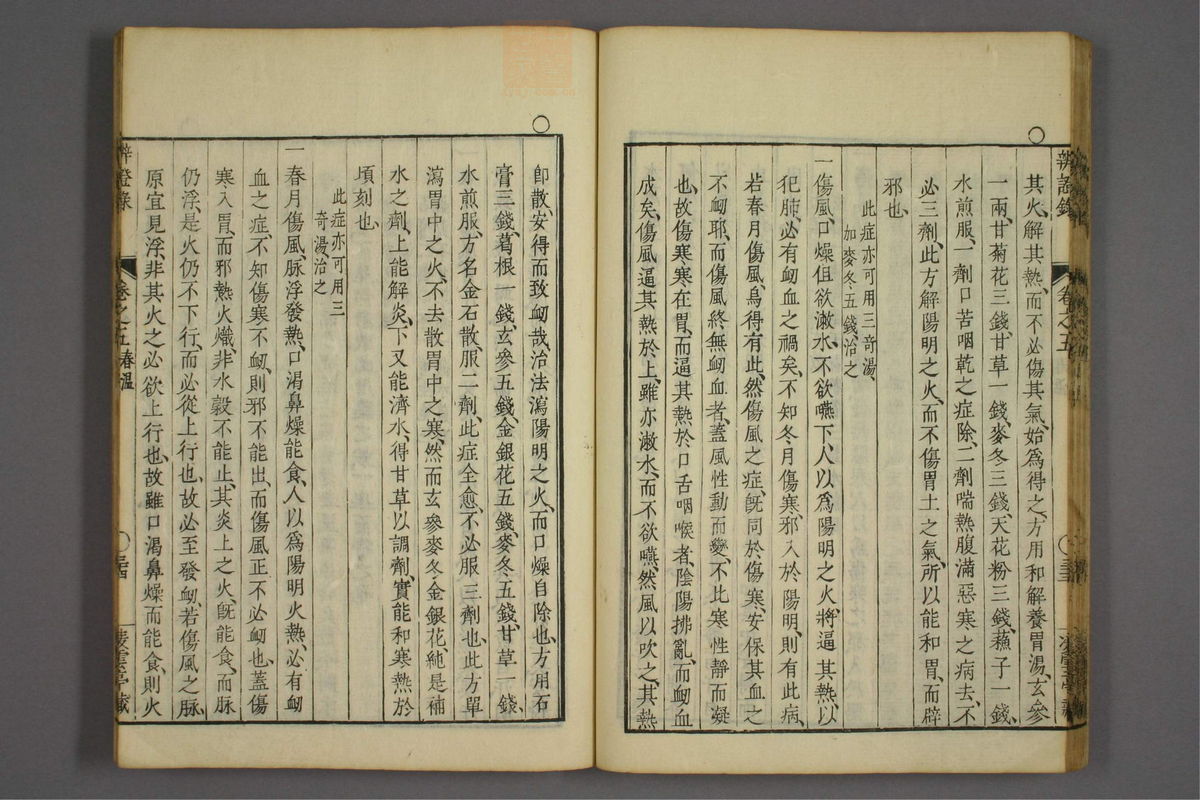 其火、解其熱、而不必傷其氣、始爲得之、方用和解養胃湯、玄參
一兩、甘菊花三錢、甘草一錢、麥冬三錢、天花粉三錢、蘓子一錢、
水煎服、一劑口苦咽乾之症除、二劑喘熱腹滿惡寒之病去、不
必三劑、此方解陽明之火、而不傷胃土之氣、所以能和胃、而辟
邪也、
此症亦可用三奇湯、
加麥冬五錢治之
一傷風、口燥但欲漱水、不欲嚥下、人以爲陽明之火、將逼其熱、以
犯肺、必有衂血之禍矣、不知冬月傷寒、邪入於陽明、則有此病、
若春月傷風、烏得有此、然傷風之症、旣同於傷寒、安保其血之
不衂耶、而傷風終無衂血者、蓋風性動而變、不比寒性靜而凝
也、故傷寒寒在胃、而逼其熱於口舌咽喉者、陰陽拂亂、而衂血
成矣、傷風逼其熱於上、雖亦漱水、而不欲嚥、然風以吹之、其熱
辨證錄
卷之五
卽散、安得而致衂哉、治法瀉陽明之火、而口燥自除也、方用石
膏三錢、葛根一錢、玄參五錢、金銀花五錢、麥冬五錢、甘草一錢、
水煎服、方名金石散、服二劑、此症全愈、不必服三劑也、此方單
瀉胃中之火、不去散胃中之寒、然而玄參麥冬金銀花、純是補
水之劑、上能解炎、下又能濟水、得甘草以調劑、實能和寒熱於
頃刻也、
此症亦可用三
奇湯治之
一春月傷風、脉浮發熱、口渴鼻燥能食、人以爲陽明火熱、必有衂
血之症、不知傷寒不衂、則邪不能出、而傷風正不必衂也、蓋傷
寒入胃、而邪熱火熾、非水穀不能止、其炎上之火、旣能食、而脉
仍浮、是火仍不下行、而必從上行也、故必至發衂、若傷風之脉、
原宜見浮、非其火之必欲上行也、故雖口渴鼻燥而能食、則火
辨證錄
卷之五春溫